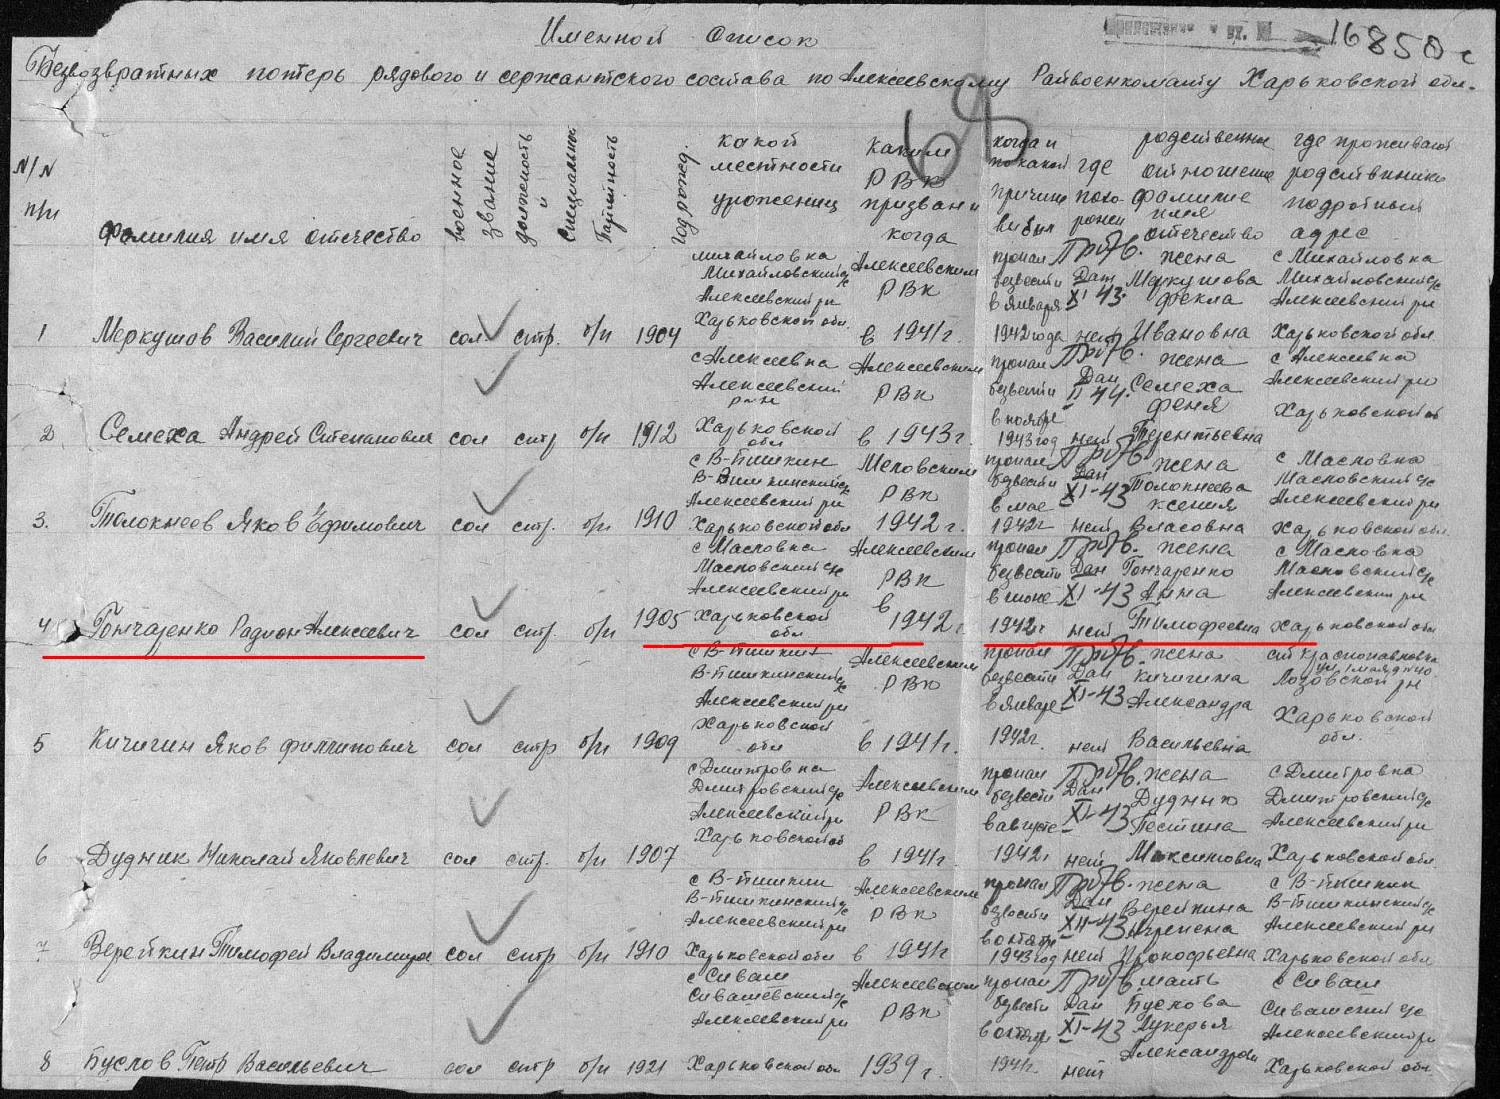 Именной список
16850с
Безвозвратных потерь рядового и сержантского состава по Алексеевскому Райвоенкомату Харьковской обл.
68
N/N п/п
фамилия имя отечество
военное звание
должность и специальн
Партийность
год рожд.
какой местности урожениц
каким РВК призван и когда
когда и по какой причине выбыл
где похо-
родственное отношение фамилия имя отечество
где проживают родственники подробный адрес
1 Меркушов Василий Сергеевич сол. стр. б/п 1904
Михайловка Михайловский с/с Алексеевский р-н Харьковской обл.
Алексеевским РВК в 1941г.
пропал безвести в января 1942 года
Дан XI 43. нет
жена Меркушова фекла Ивановна
с Михайловка Михайловский с/с Алексеевский р-н Харьковской обл
2 Семеха Андрей Степанович сол стр б/п 1912
с Алексеевка Алексеевский р-н Харьковской обл
Алексеевским РВК в 1943г.
пропал безвести в ноябре 1943 год
Дан II 44. нет
жена Семеха феня Терентьевна
с Алексеевка Алексеевский р-н Харьковской об
3. Толокнеев Яков Ефимович сол стр. б/п 1910
с В-Бишкин В-Бишкинский с/с Алексеевский р-н Харьковской обл
РВК 1942 г.
пропал безвести в мае 1942г
Дан XI-43 нет
жена Толокнеева ксения Власовна
с Масловка Масловский с/с Алексеевский р-н Харьковской обл.
4 Гончаренко Радион Алексеевич сол стр. б/п 1905
с Масловка Масловский с/с Алексеевский р-н Харьковской обл
Алексеевским РВК в 1942 г.
пропал безвести в июне 1942г
Дан XI-43 нет
жена Гончаренко Анна Тимофеевна
с Масловка Масловский с/с Алексеевский р-н Харьковской обл
5 Кичигин Яков филипович сол стр б/п 1909
с В-Бишкин В-Бишкинский с/с Алексеевский р-н Харьковской обл
Алексеевским РВК в 1941г.
пропал безвести в январе 1942г.
Дан XI-43 нет
жена Кичигина Александра Васильевна
Лозовской р-н Харьковской обл.
6 Дудник Николай Яковлевич сол стр. б/п 1907
с Дмитровка Дмитровский с/с Алексеевский р-н Харьковской об
Алексеевским РВК в 1941г.
пропал безвести в августе 1942г
Дан XI-43 нет
жена Максимовна
с Дмитровка Дмитровский с/с Алексеевский р-н Харьковской обл.
7 Верейкин Тимофей сол стр б/п 1910
с В-Бишкин В-Бишкинский с/с Алексеевский р-н Харьковской обл
Алексеевским РВК в 1941г
пропал безвести в октябр 1943 год
Дан XII-43 нет
жена Верейкина Прокофьевна
с В-Бишкин В-Бишкинский с/с Алексеевский р-н Харьковской обл.
8 Буслов Петр Васильевич сол стр б/п 1921
с Сиваш Сивашевский с/с Алексеевский р-н Харьковской обл
Алексеевским РВК 1939 г.
пропал безвести в октябр 1941г.
Дан XI-43 нет
мать Лукерья
с Сиваш Сивашский с/с Алексеевский р-н Харьковской обл.